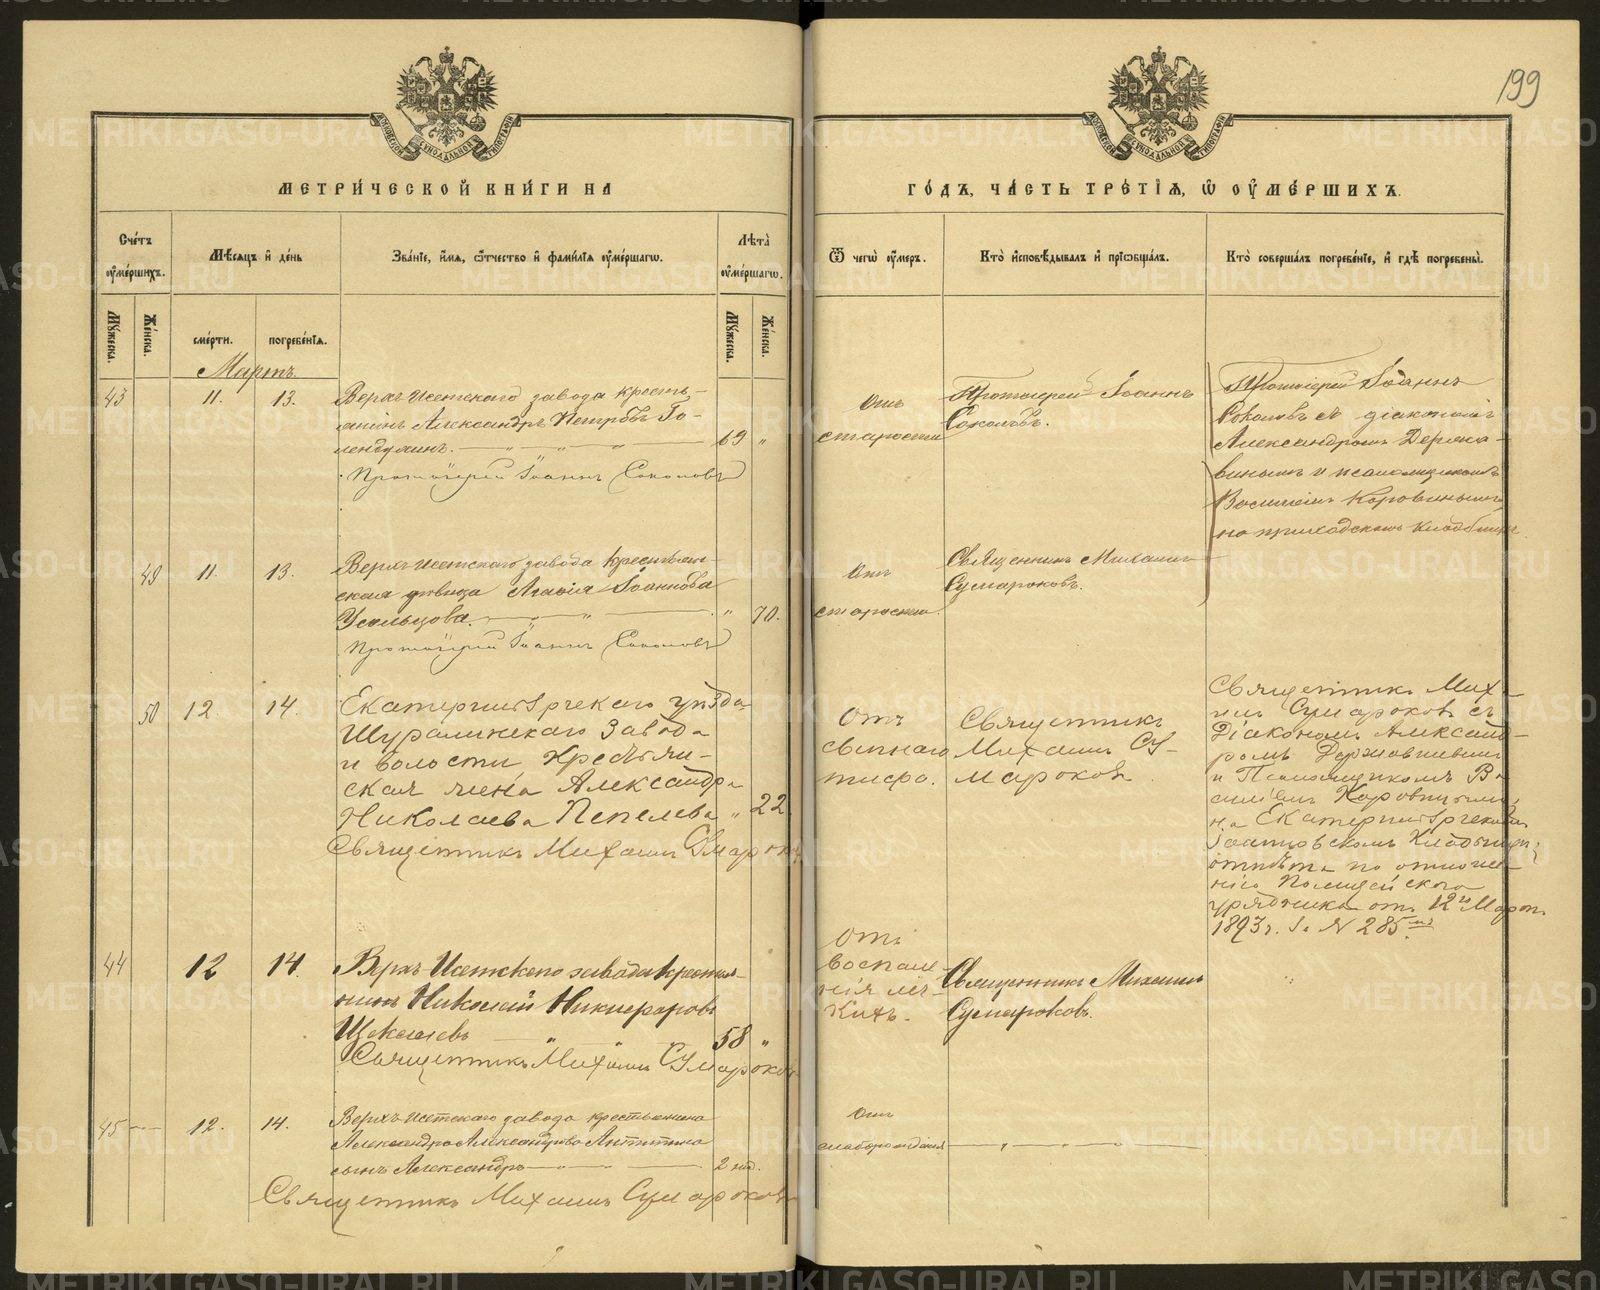 199
МЕТРИ́ЧЕСКОЙ КНИ́ГИ НА
ГО́ДЪ, ЧА́СТЬ ТРЕ́ТІѦ, Ѡ ОУ҆МЕ́РШИХЪ.
Сче́тъ оу҆ме́ршихъ.
Мѣ́сяцъ и҆ де́нь
Зва́нїе, и҆́мя, ѻ҆́тчество и҆ фами́лїя оу҆ме́ршагѡ.
Лѣ́та оу҆ме́ршагѡ.
Ѿ чегѡ̀ оу҆́меръ.
Кто̀ и҆сповѣ́дывалъ и҆ прїѻбща́лъ.
Кто̀ соверша́лъ погребе́нїе, и҆ гдѣ̀ погребены̀.
Му́жеска.
Же́нска.
сме́рти.
погребе́нїя.
Му́жеска.
Же́нска.
Мартъ
43 11. 13.
Верхъ-Исетскаго завода кресть-
янинъ Александръ Петровъ Го-
лендухинъ. 69 "
Протоіерей Іоаннъ Соколовъ
Отъ
старости
Протоіерей Іоаннъ
Соколовъ.
Протоіерей Іоаннъ
Соколовъ съ діакономъ
Александромъ Держа-
винымъ и псаломщикомъ
Василіемъ Коровинымъ
на приходскомъ кладбищѣ
49 11. 13.
Верхъ-Исетскаго завода крестьян-
ская дѣвица Агафія Іоаннова
Усольцова. " 70.
Протоіерей Іоаннъ Соколовъ
Отъ
старости.
Священникъ Михаилъ
Сумароковъ.
50 12. 14.
Екатеринбургскаго уѣзда
Шуралинскаго Завода
и волости Крестьян-
ская жена Александра
Николаева Пепелева " 22.
Священникъ Михаилъ Сумароковъ
Отъ
сыпнаго
тифа.
Священникъ
Михаилъ Су-
мароковъ.
Священникъ Миха-
илъ Сумароковъ съ
Діакономъ Александ-
ромъ Державинымъ
и Псаломщикомъ Ва-
силіемъ Коровинымъ,
на Екатеринбургскомъ
Іоанновскомъ Кладбищѣ;
отпѣта по отноше-
нію Полицейскаго
урядника отъ 12го Марта
1893 г. за N 285мъ
44 12 14.
Верхъ-Исетскаго завода крестья-
нинъ Николай Никифоровъ
Щекалевъ 58 "
Священникъ Михаилъ Сумароковъ
Отъ
воспале-
нія лег-
кихъ.
Священникъ Михаилъ
Сумароковъ.
45 12. 14.
Верхъ-Исетскаго завода крестьянина
Александра Александрова Антипина
сынъ Александръ 2 нед.
Священникъ Михаилъ Сумароковъ
Отъ
слаборожденія